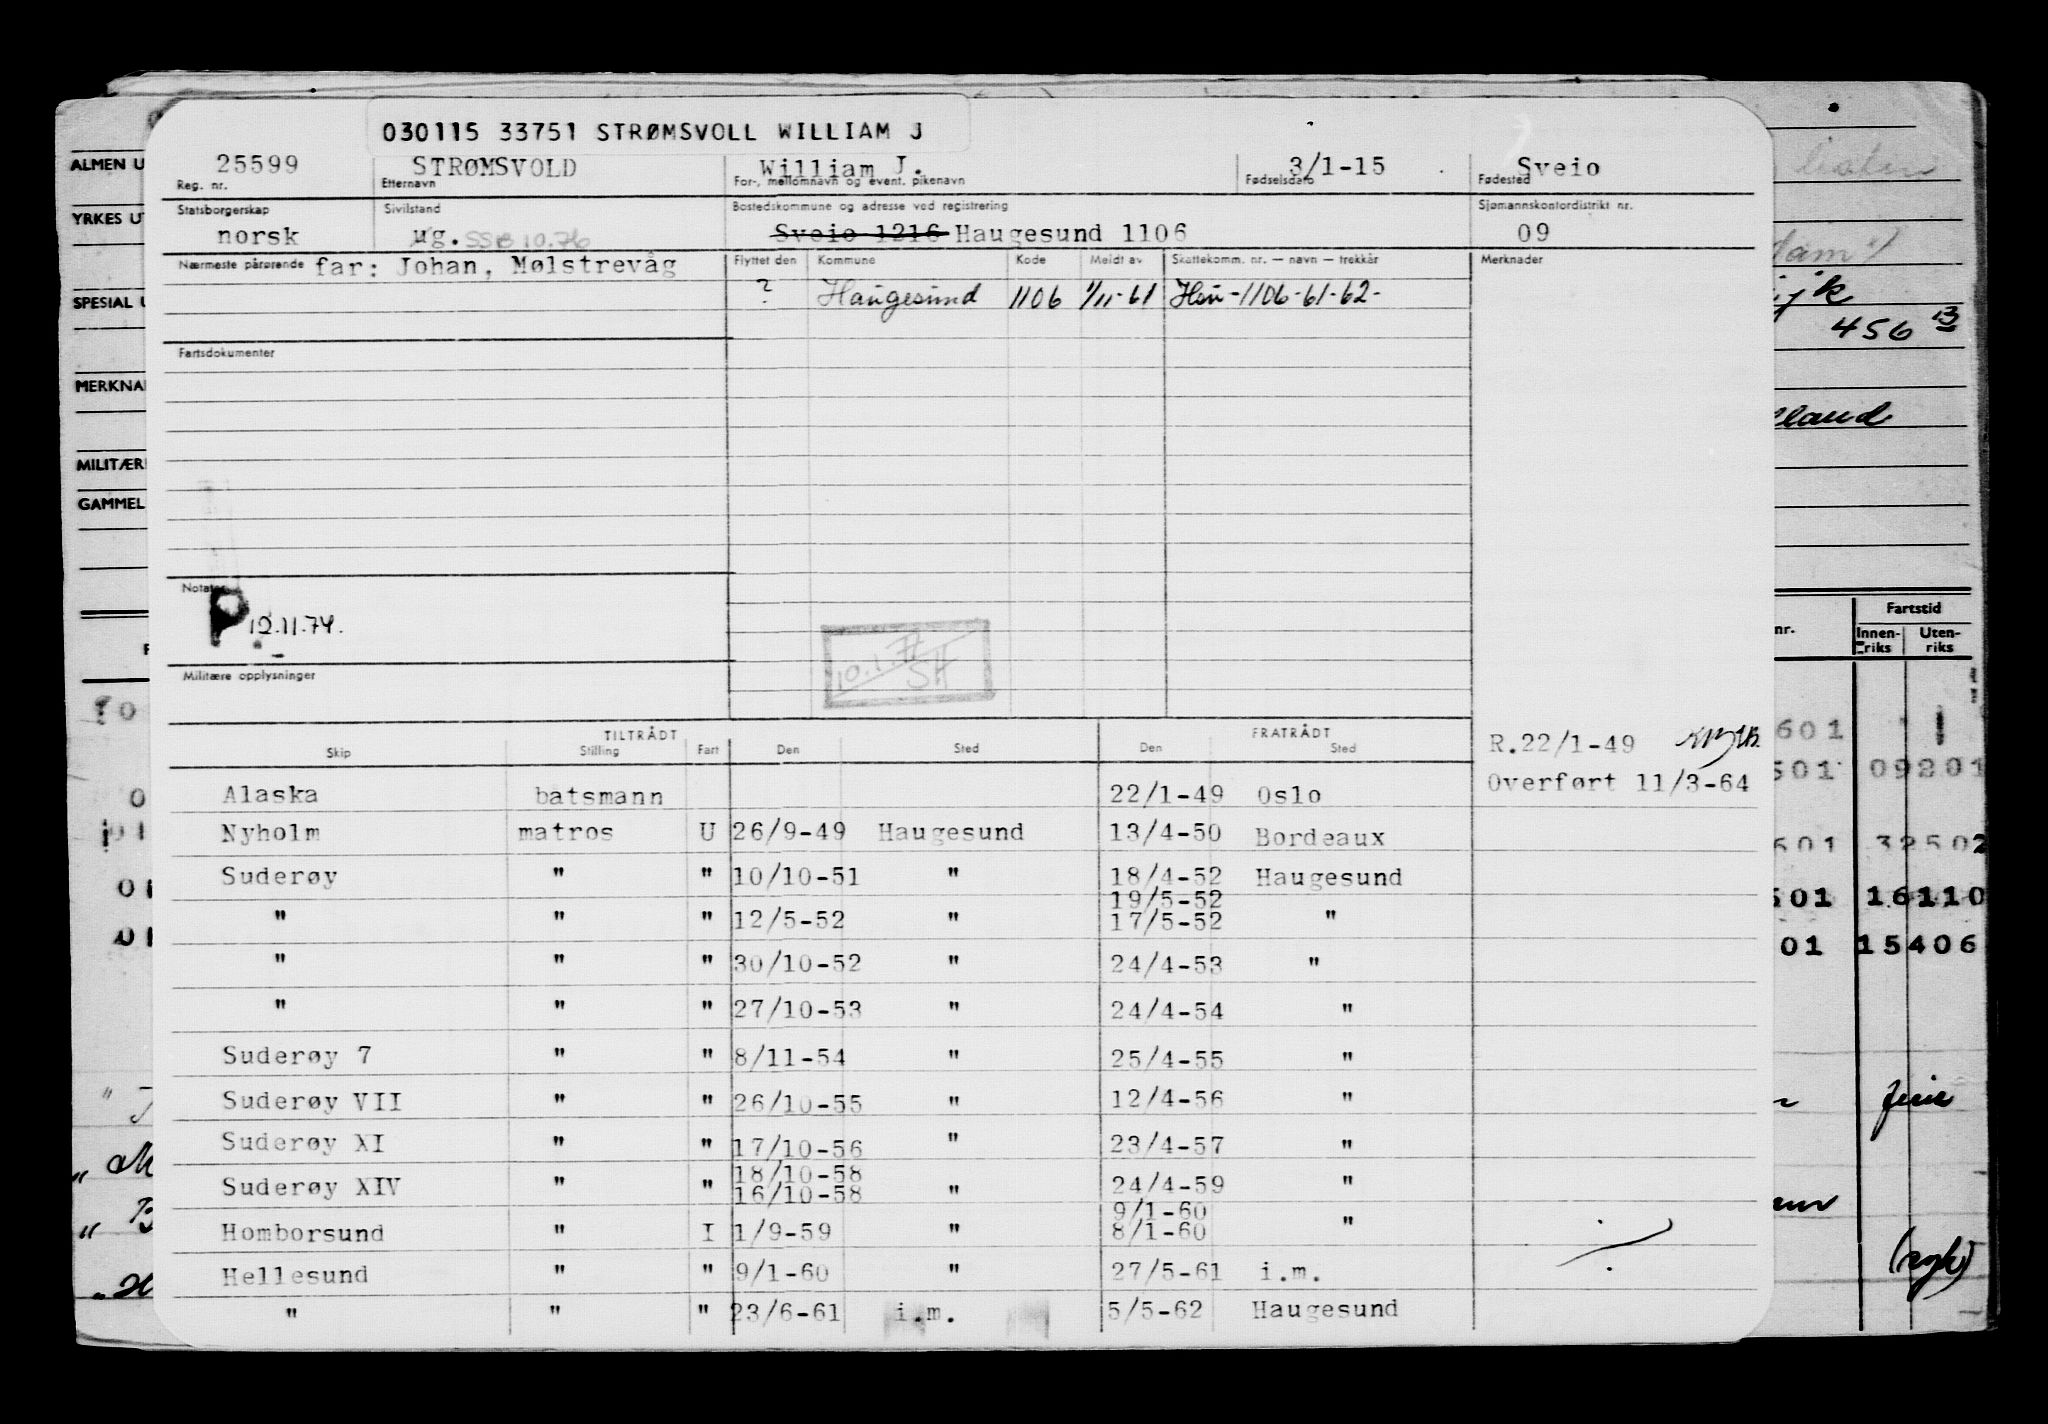 030115 33751 STRØMSVOLL WILLIAM J
25599 STRØMSVOLD William J. 3/1-15 Sveio
Reg. nr. Etternavn For-, mellomnavn og event. pikenavn Fødselsdato Fødested
Statsborgerskap Sivilstand Bostedskommune og adresse ved registrering Sjømannskontordistrikt nr.
norsk ug. SSB 10.76 Sveio 1216 Haugesund 1106 09
Nærmeste pårørende far: Johan, Mølstrevåg Flyttet den Kommune Kode Meldt av Skattekomm. nr. — navn — trekkår Merknader
? Haugesund 1106 1/11-61 Hau-1106-61-62-
Fartsdokumenter
Notater
P 12.11.74.
10.1.77 SH
Militære opplysninger
TILTRÅDT FRATRÅDT
Skip Stilling Fart Den Sted Den Sted
R.22/1-49
Overført 11/3-64
Alaska batsmann 22/1-49 Oslo
Nyholm matros U 26/9-49 Haugesund 13/4-50 Bordeaux
Suderøy " " 10/10-51 " 18/4-52 Haugesund
19/5-52
" " " 12/5-52 " 17/5-52 "
" " " 30/10-52 " 24/4-53 "
" " " 27/10-53 " 24/4-54 "
Suderøy 7 " " 8/11-54 " 25/4-55 "
Suderøy VII " " 26/10-55 " 12/4-56 "
Suderøy XI " " 17/10-56 " 23/4-57 "
18/10-58
Suderøy XIV " " 16/10-58 " 24/4-59 "
9/1-60
Homborsund " I 1/9-59 " 8/1-60 "
Hellesund " " 9/1-60 " 27/5-61 i.m.
" " " 23/6-61 i.m. 5/5-62 Haugesund
ALMEN U
YRKES UT
SPESIAL U
MERKNA
MILITÆR
GAMMEL
456 13
lland
nr. Fartstid
Innen-riks Uten-riks
601
501 09201
601 32502
501 16110
01 15406